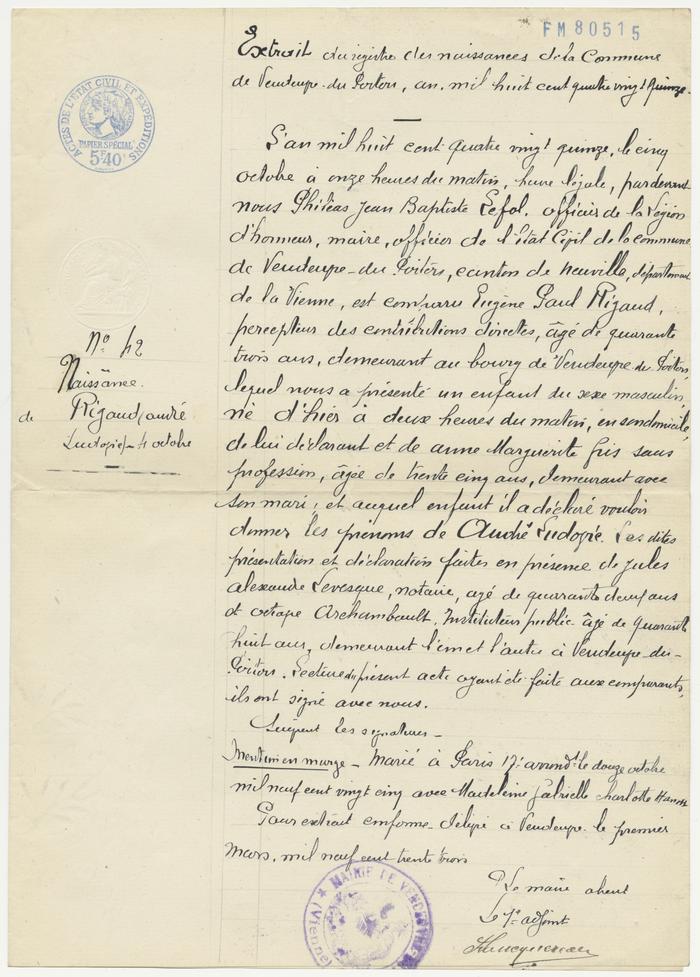 FM 80515
Extrait du registre des naissances de la Commune
de Vendeuvre-du-Poitou, an mil huit cent quatre vingt quinze.
ACTES DE L'ETAT CIVIL ET EXPEDITIONS
PAPIER SPÉCIAL
5F40
L'an mil huit cent quatre vingt quinze, le cinq
octobre à onze heures du matin, heure légale, par devant
nous Philéas Jean Baptiste Lefol, officier de la Légion
d'honneur, maire, officier de l'état Civil de la commune
de Vendeuvre-du-Poitou, canton de Neuville, département
de la Vienne, est comparu Eugène Paul Rigaud,
percepteur des contributions directes, âgé de quarante
trois ans, demeurant au bourg de Vendeuvre du Poitou
lequel nous a présenté un enfant du sexe masculin
né d'hier à deux heures du matin, en son domicile,
de lui déclarant et de anne Marguerite Gris sans
profession, âgée de trente cinq ans, demeurant avec
son mari; et auquel enfant il a déclaré vouloir
donner les prénoms de André Ludogie. Les dites
présentation et déclaration faites en présence de Jules
alexandre Levesque, notaire, agé de quarante deux ans
et octave Archambault, Instituteur public âgé de quarante
huit ans, demeurant l'un et l'autre à Vendeuvre-du-
Poitou. Lecture du présent acte ayant été faite aux comparants,
ils ont signé avec nous.
Suivent les signatures-
Mention en marge - Marié à Paris 17e arrondt le douze octobre
mil neuf cent vingt cinq avec Madeleine Gabrielle Charlotte
Pour extrait conforme délivré à Vendeuvre le premier
Mars, mil neuf cent trente trois
Le maire absent
Le 1er adjoint
No 42
Naissance
de Rigaud (andré
Ludogie) - 4 octobre
MAIRIE DE VENDEUVRE
(Vienne)